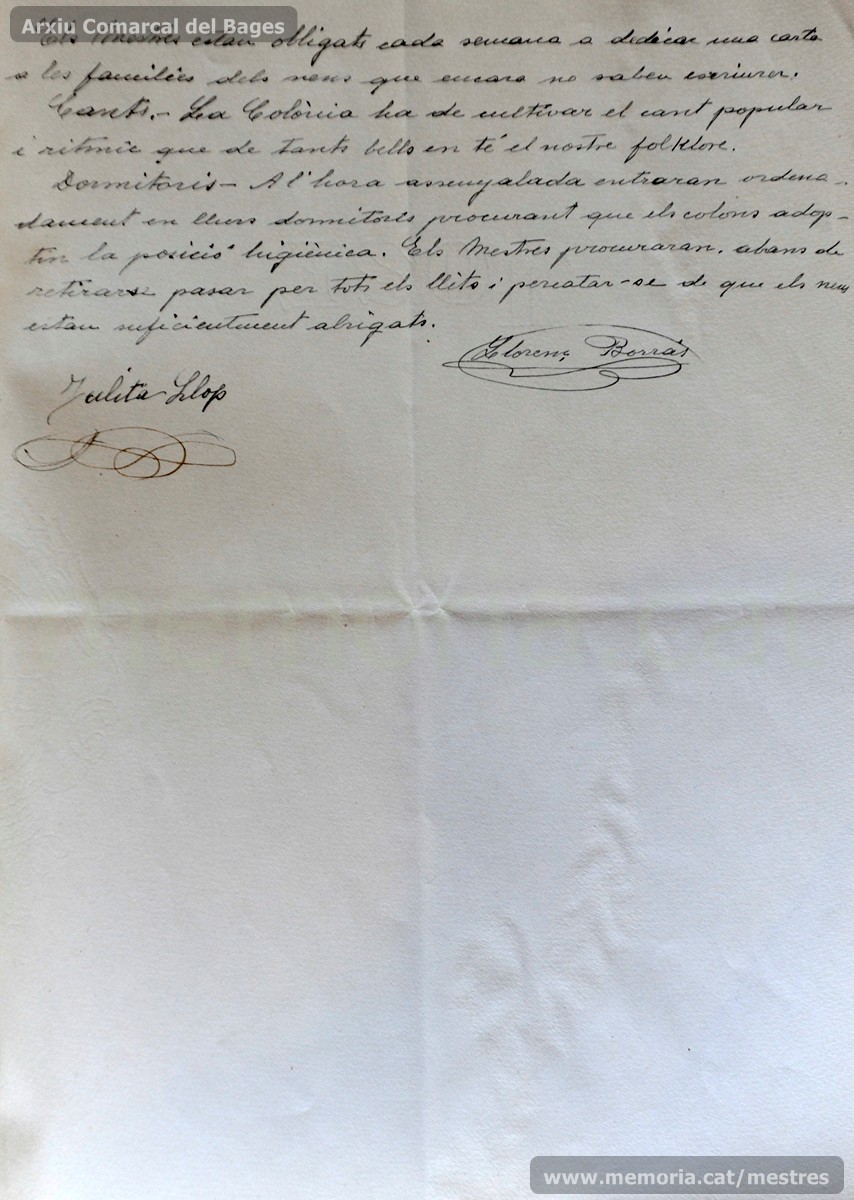 Arxiu Comarcal del Bages
Els Mestres estan obligats cada semana a dedicar una carta
a les famílies dels nens que encara no saben escriurer.
Cants.- La Colònia ha de cultivar el cant popular
i ritmic que de tants bells en té el nostre folklore.
Dormitoris - A l'hora assenyalada entraran ordena-
dament en llurs dormitoris procurant que els colons adop-
tin la posició higiènica. Els Mestres procuraran, abans de
retirarse pasar per tots els llits i percatar-se de que els nens
estan suficientment abrigats.
Llorenç Borràs
Julita Llop
www.memoria.cat/mestres